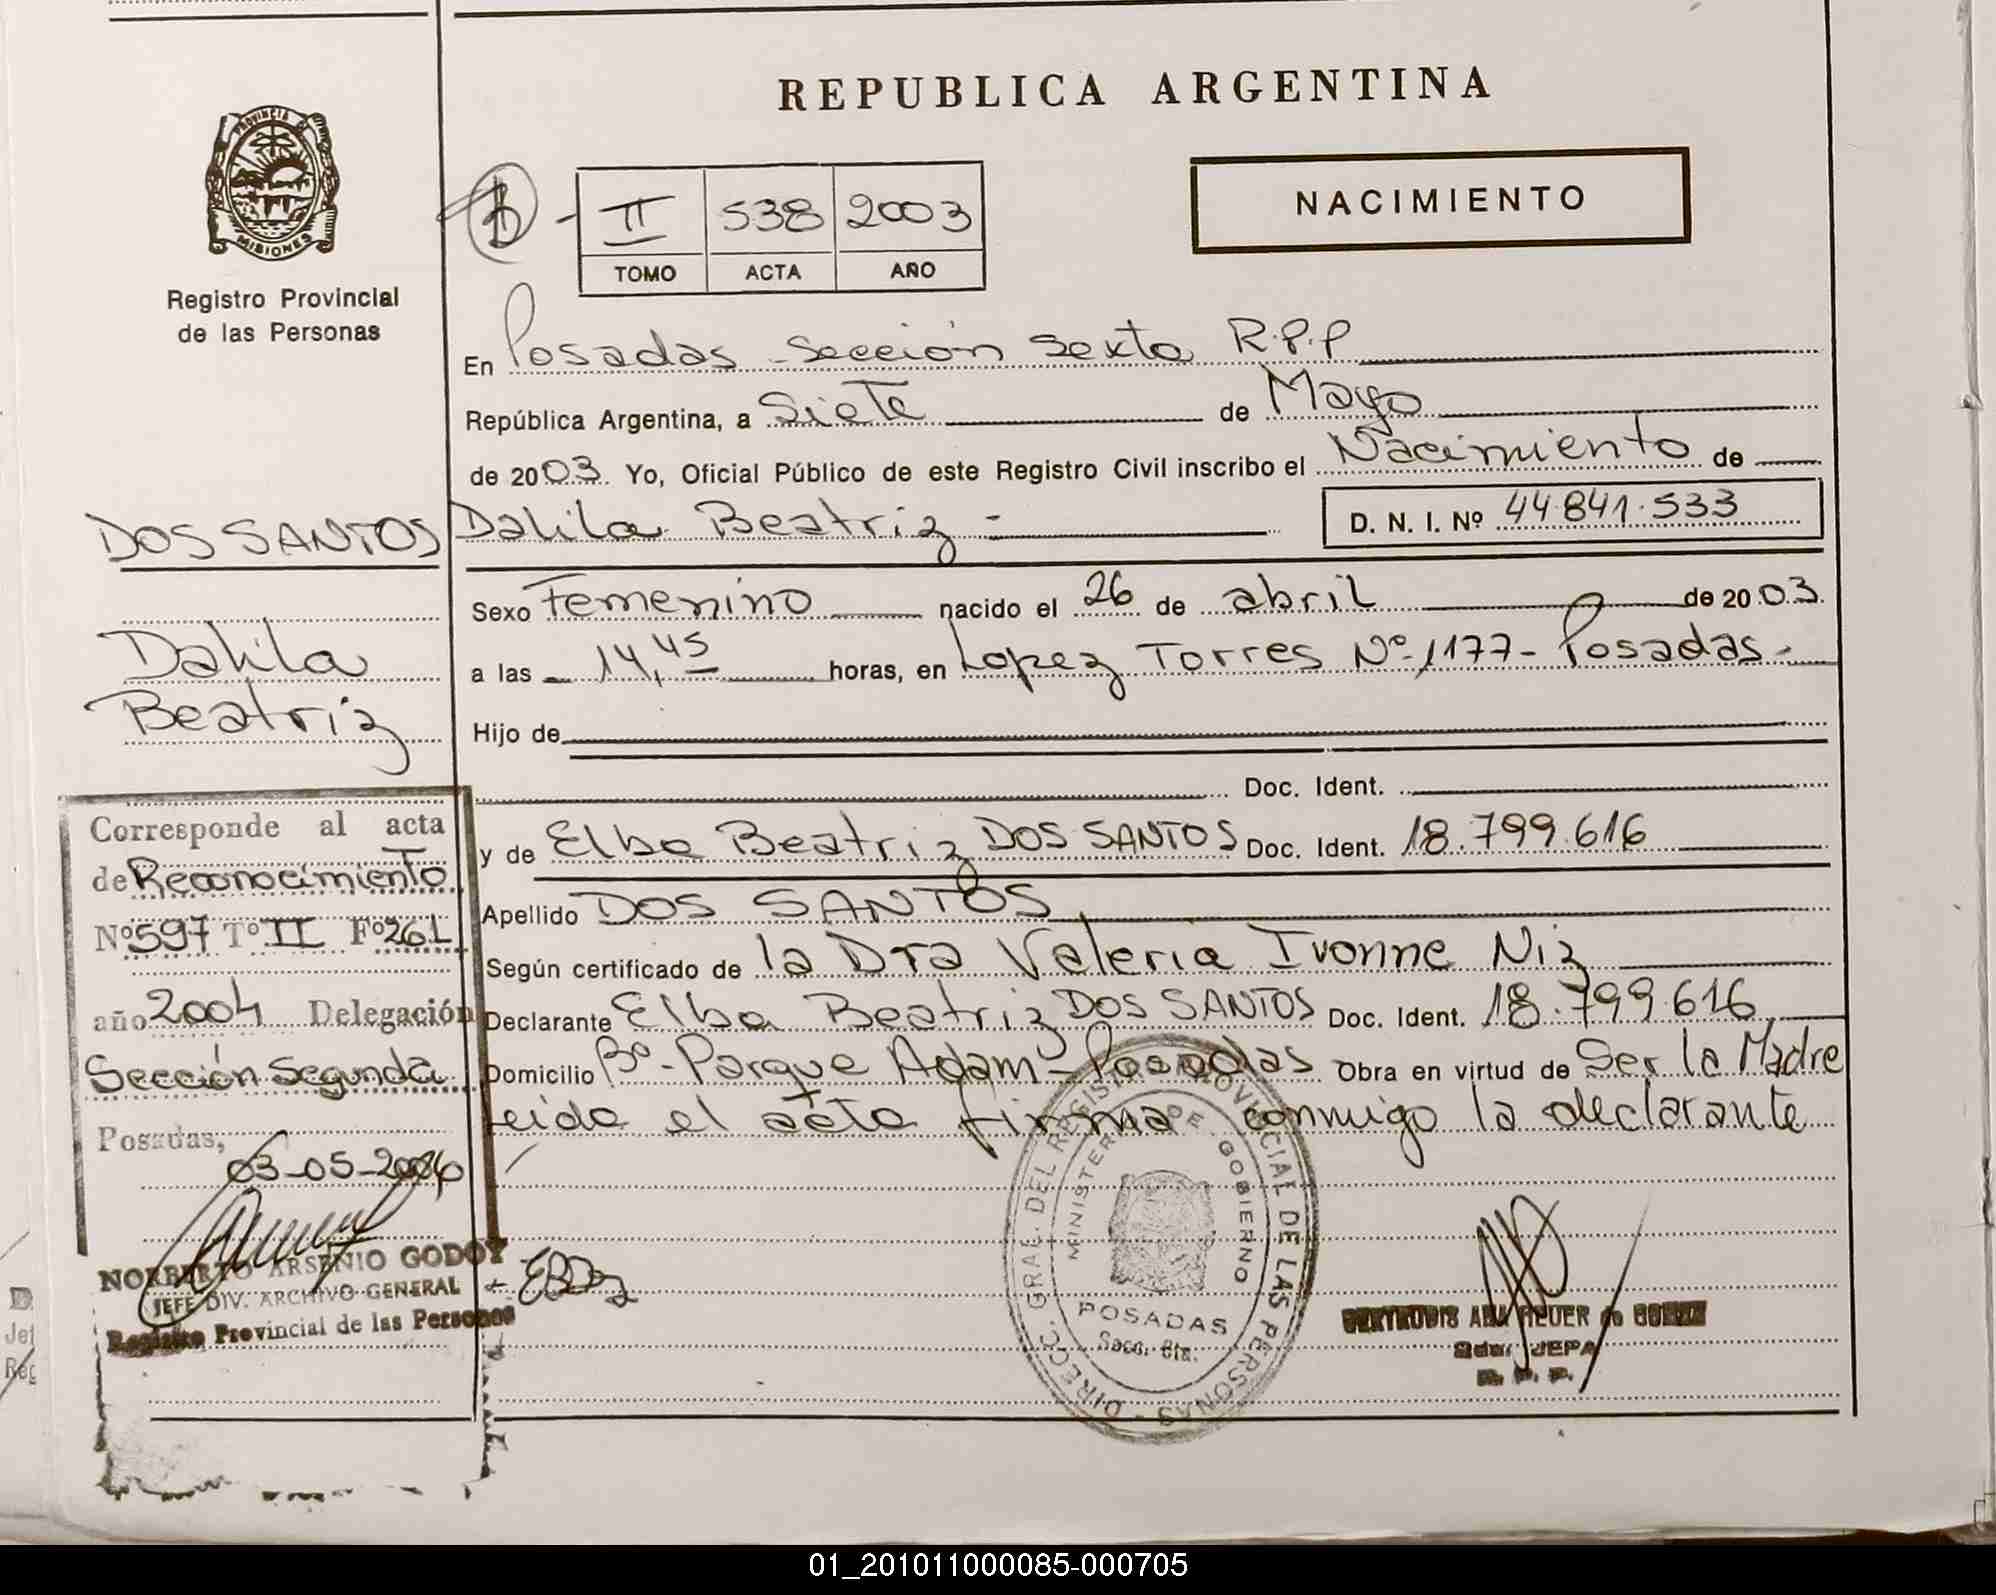 REPUBLICA ARGENTINA
PROVINCIA DE
MISIONES
Registro Provincial
de las Personas
II 538 2003
TOMO ACTA AÑO
NACIMIENTO
En Posadas - Sección Sexta R.P.P
República Argentina, a Siete de Mayo
de 2003. Yo, Oficial Público de este Registro Civil inscribo el Nacimiento de
DOS SANTOS Dalila Beatriz - D. N. I. Nº 44.841.533
Sexo Femenino nacido el 26 de abril de 2003.
a las 14,45 horas, en Lopez Torres Nº 1177 - Posadas -
Dalila
Beatriz
Hijo de
Doc. Ident.
y de Elba Beatriz DOS SANTOS Doc. Ident. 18.799.616
Apellido DOS SANTOS
Según certificado de la Dra Valeria Ivonne Niz
Declarante Elba Beatriz DOS SANTOS Doc. Ident. 18.799.616
Domicilio Bº - Parque Adam - Posadas Obra en virtud de Ser la Madre
Leida el acta firma conmigo la declarante
Corresponde al acta
de Reconocimiento
Nº 597 Tº II Fº 261
año 2004 Delegación
Sección Segunda
Posadas,
03-05-2004
NORBERTO ARSENIO GODOY
JEFE DIV. ARCHIVO GENERAL
Registro Provincial de las Personas
DIRECC. GRAL. DEL REGISTRO PROVINCIAL DE LAS PERSONAS -
MINISTERIO DE GOBIERNO
POSADAS
Secc. 6ta.
GERTRUDIS ANA
R. P. P.
01_201011000085-000705